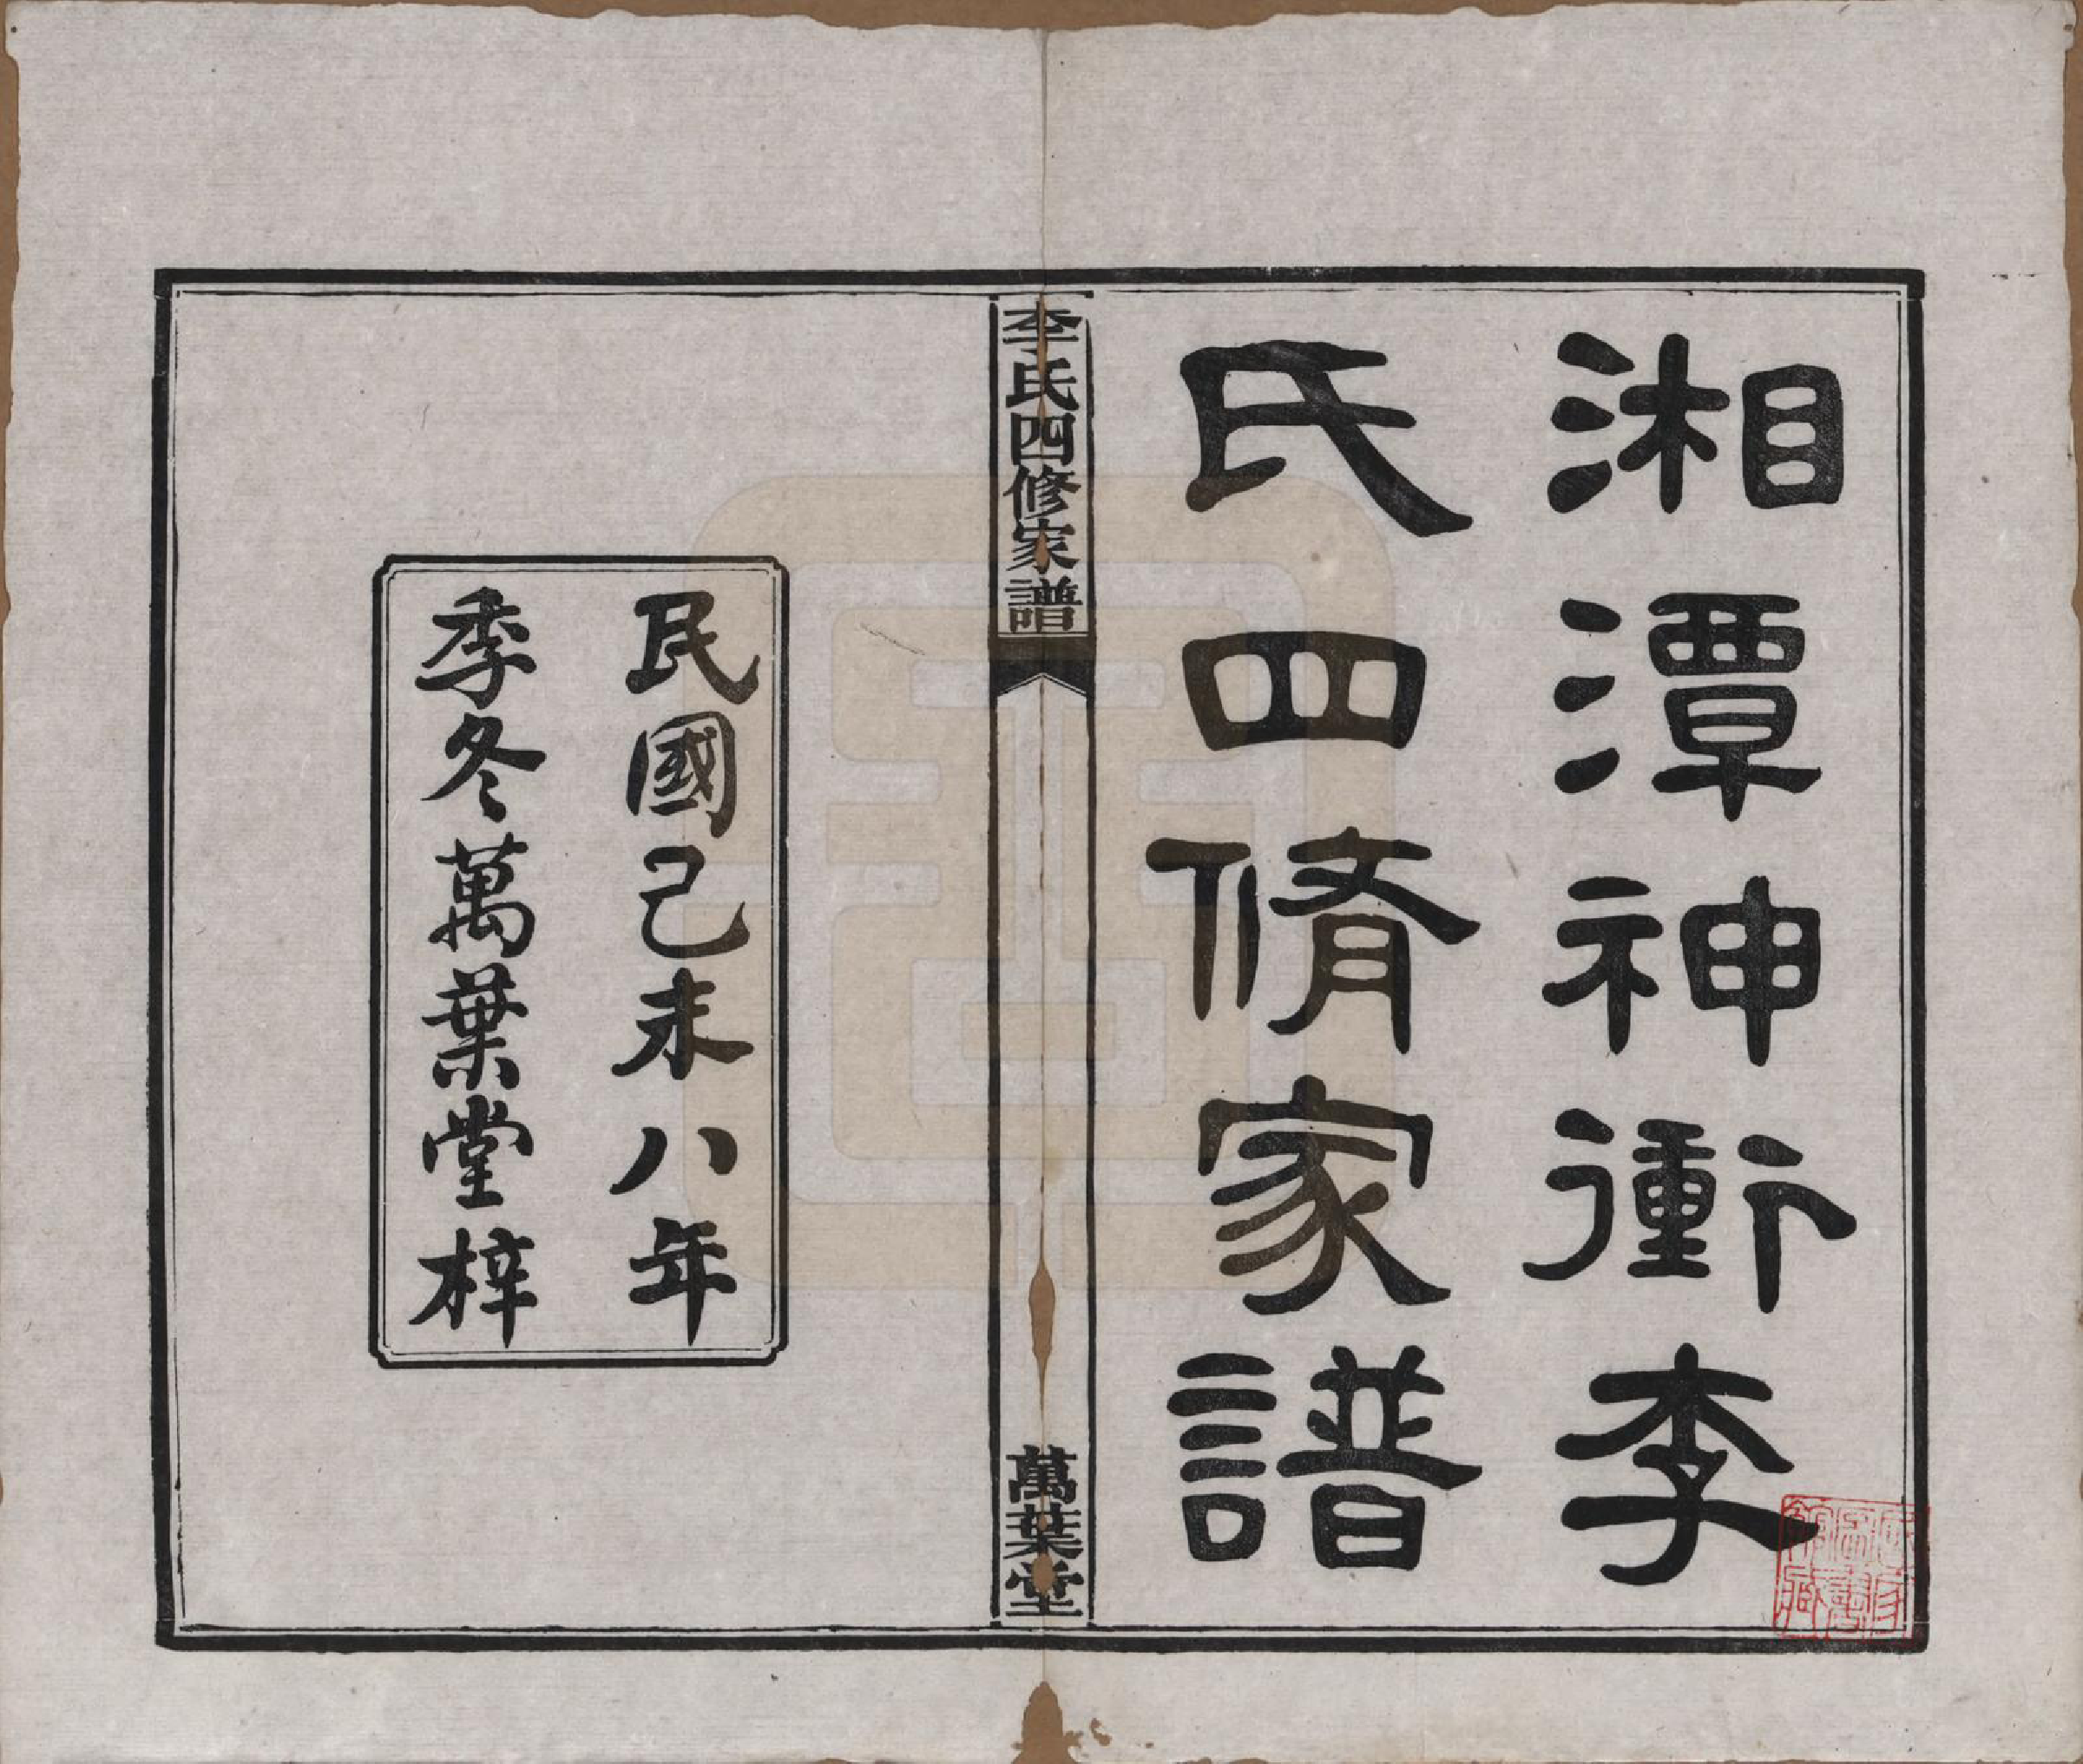 湘潭神衝李
氏四脩家譜
李氏四修家譜
萬葉堂
民國己未八年
季冬萬葉堂梓